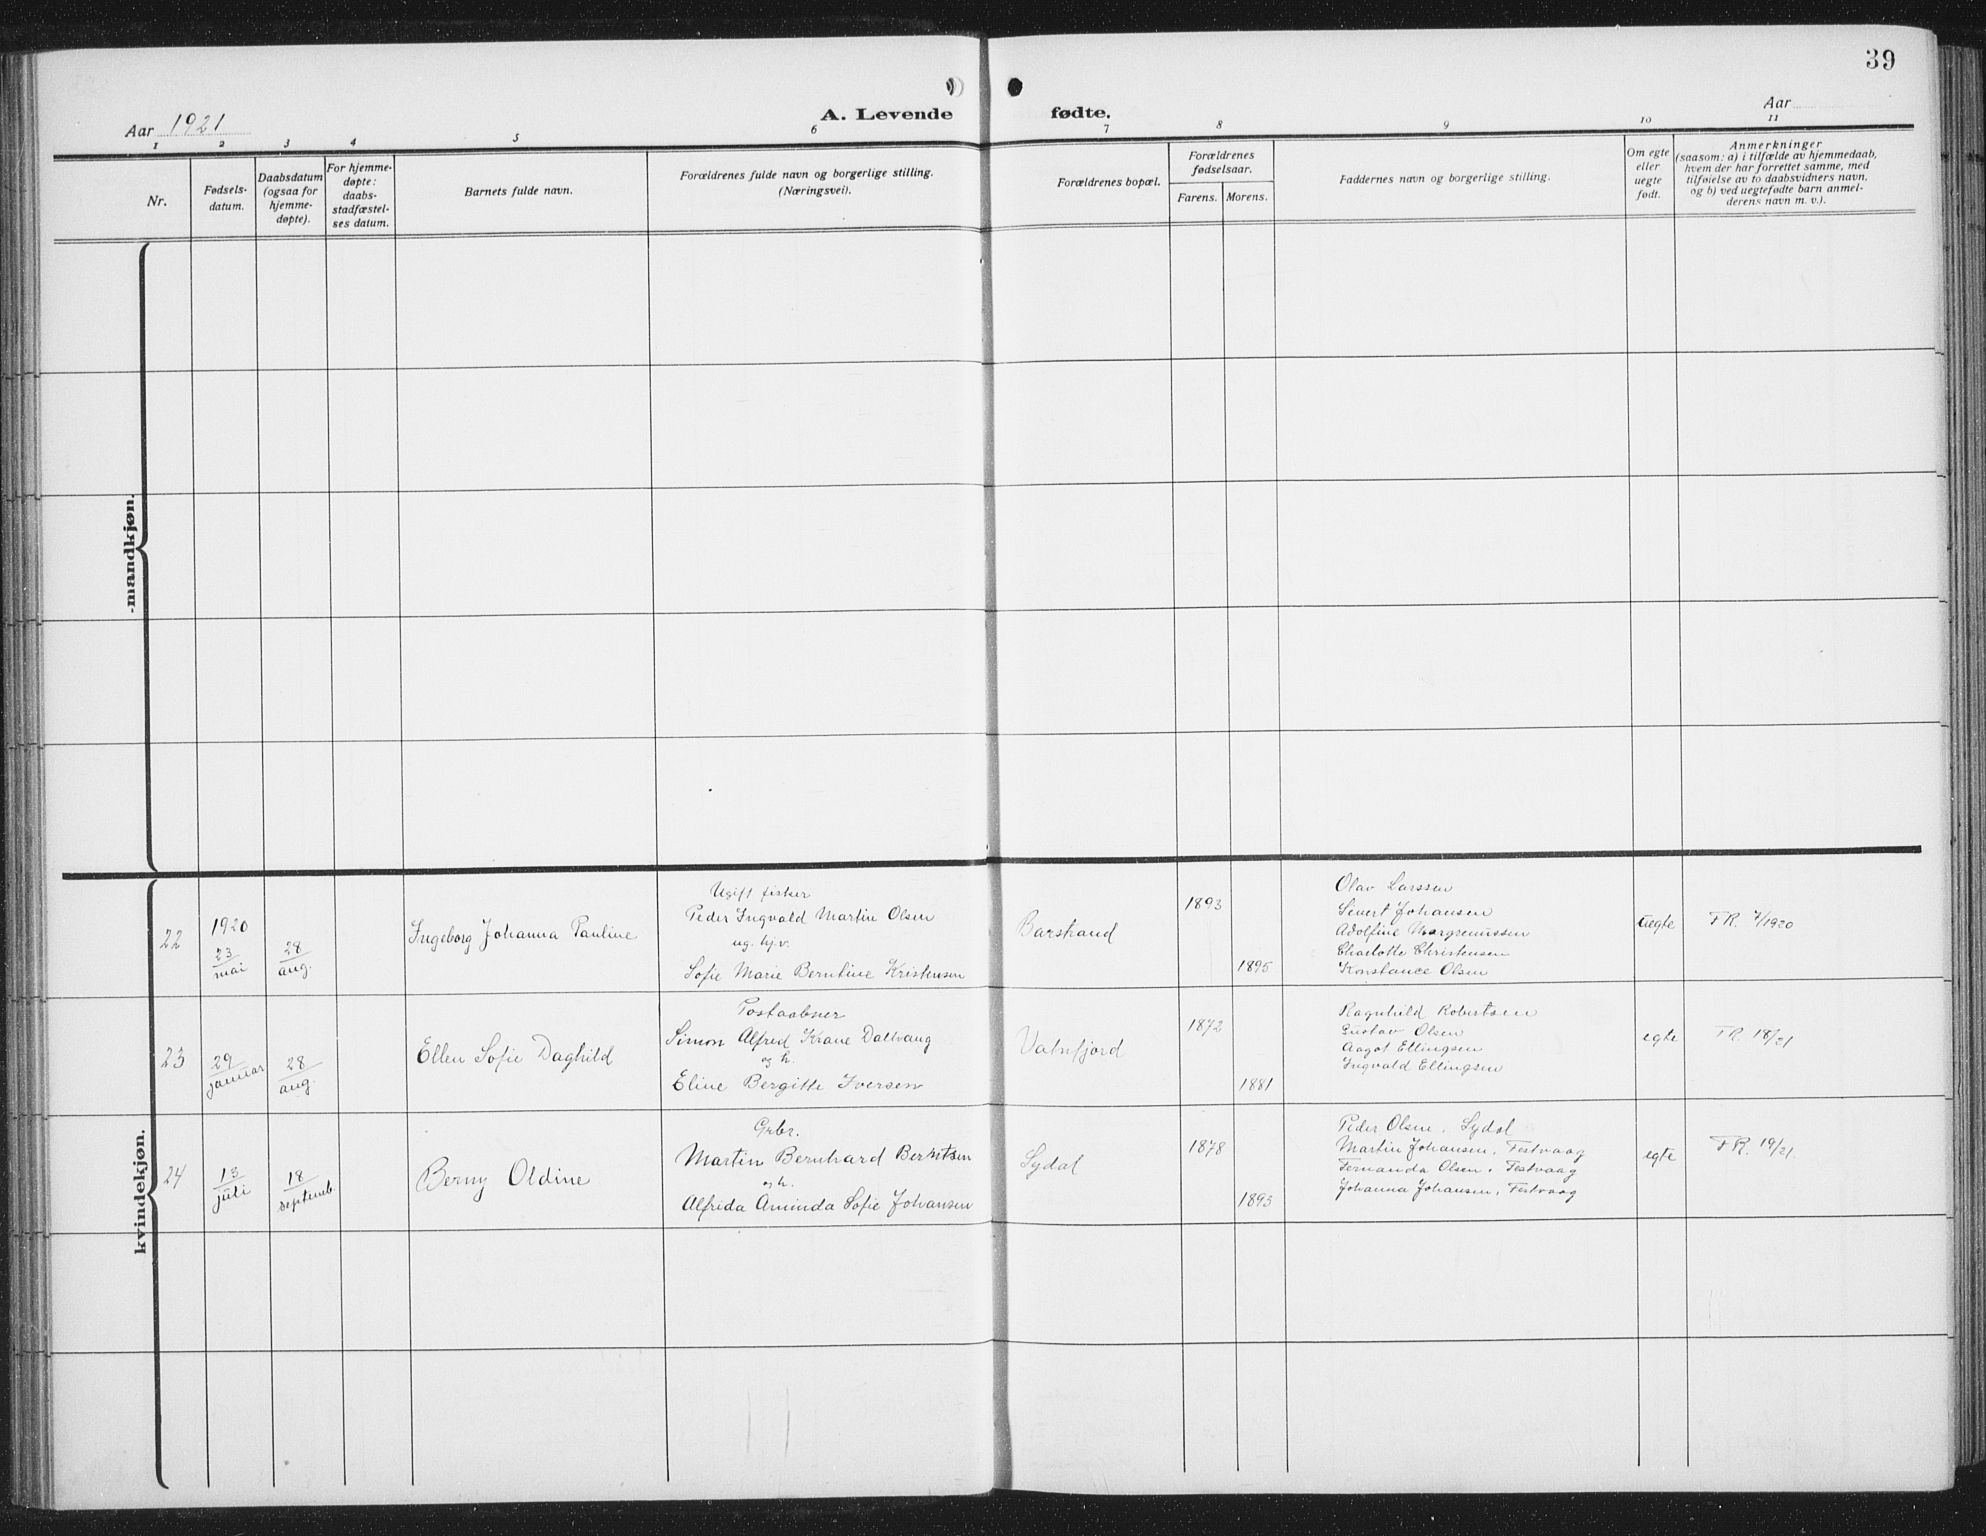 39
Aar 1921
A. Levende fødte.
Aar
1 2 3 4 5 6 7 8 9 10 11
Nr.
Fødsels-
datum.
Daabsdatum
(ogsaa for
hjemme-
døpte).
For hjemme-
døpte:
daabs-
stadfæstel-
ses datum.
Barnets fulde navn.
Forældrenes fulde navn og borgerlige stilling.
(Næringsvei).
Forældrenes bopæl.
Forældrenes
fødselsaar.
Farens. Morens.
Faddernes navn og borgerlige stilling.
Om egte
eller
uegte
født.
Anmerkninger
(saasom: a) i tilfælde av hjemmedaab,
hvem der har forrettet samme, med
tilføielse av to daabsvidners navn,
og b) ved uegtefødte barn anmel-
derens navn m. v.).
-mandkjøn.
kvindekjøn.
22
1920
23
mai
28
aug.
Ingeborg Johanna Pauline
Ugift fisker
Peder Ingvald Martin Olsen
ug. hj.v.
Sofie Marie Berntine Kristensen
Barstrand
1893
1895
Olav Larssen
Sivert Johansen
Adolfine
Charlotte Christensen
Konstance Olsen
uegte
FR. 7/1920
23
29
januar
28
aug.
Ellen Sofie Daghild
Postaabner
Simon Alfred Krane Daltvang
og h.
Eline Bergitte Iversen
Vatnfjord
1872
1881
Ragnhild Robertsen
Gustav Olsen
Aagot Ellingsen
Ingvald Ellingsen
egte
FR. 18/21
24
13
juli
18
septemb
Berny Oldine
Grbr.
Martin Bernhard Berntsen
og h.
Alfrida Aminda Sofie Johansen
Sydal
1878
1893
Peder Olsen, Sydal
Martin Johansen, Festvaag
Fernanda Olsen, Festvaag
Johanna Johansen, Festvaag
egte
FR. 19/21.